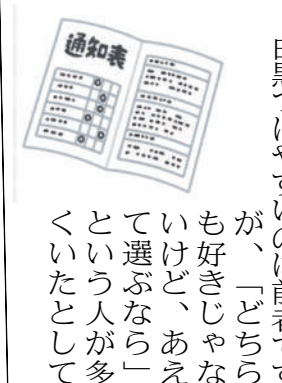 通知表
白黒つけやすいのは前者です
が、「どちら
も好きじゃな
いけど、あえ
て選ぶなら」
という人が多
くいたとして